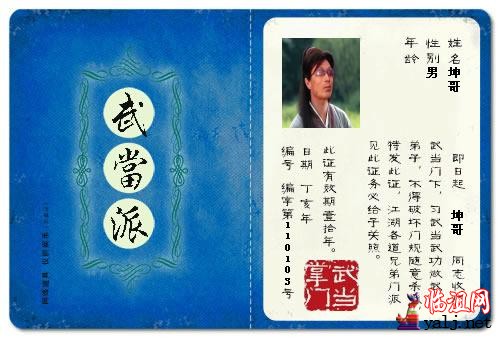 武當派
网络道具 仅供娱乐
姓名 坤哥
性别 男
年龄
即日起 坤哥 同志收
武当门下,习武当武功做武
弟子,不得破坏门规随意杀
特发此证,江湖各道兄弟门派
见此证务必给予关照。
此证有效期壹拾年。
日期 丁亥年
编号 编字第110103号
武当
掌门
临沮网
yalj.net